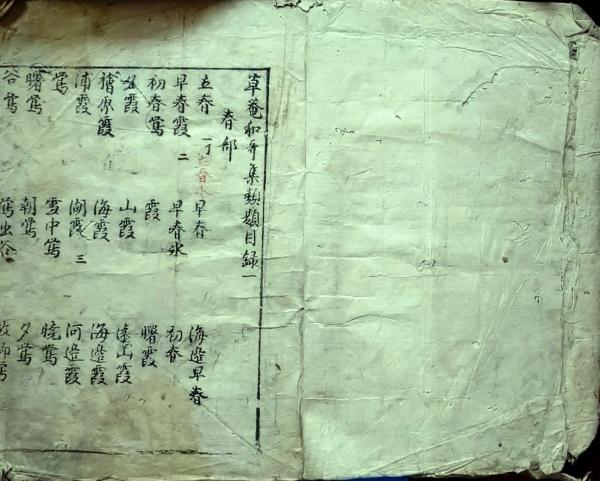 草菴和哥集類題目録一
春部
立春 一丁 早春 海邊早春
立春氷
早春霞 二 早春氷 初春
初春鶯 霞 曙霞
霞 山霞 遠山霞
檜原霞 海霞 海邊霞
浦霞 湖霞 三 河邊霞
鶯 雪中鶯 暁鶯
曙鶯 朝鶯 夕鶯
谷鶯 鶯出谷